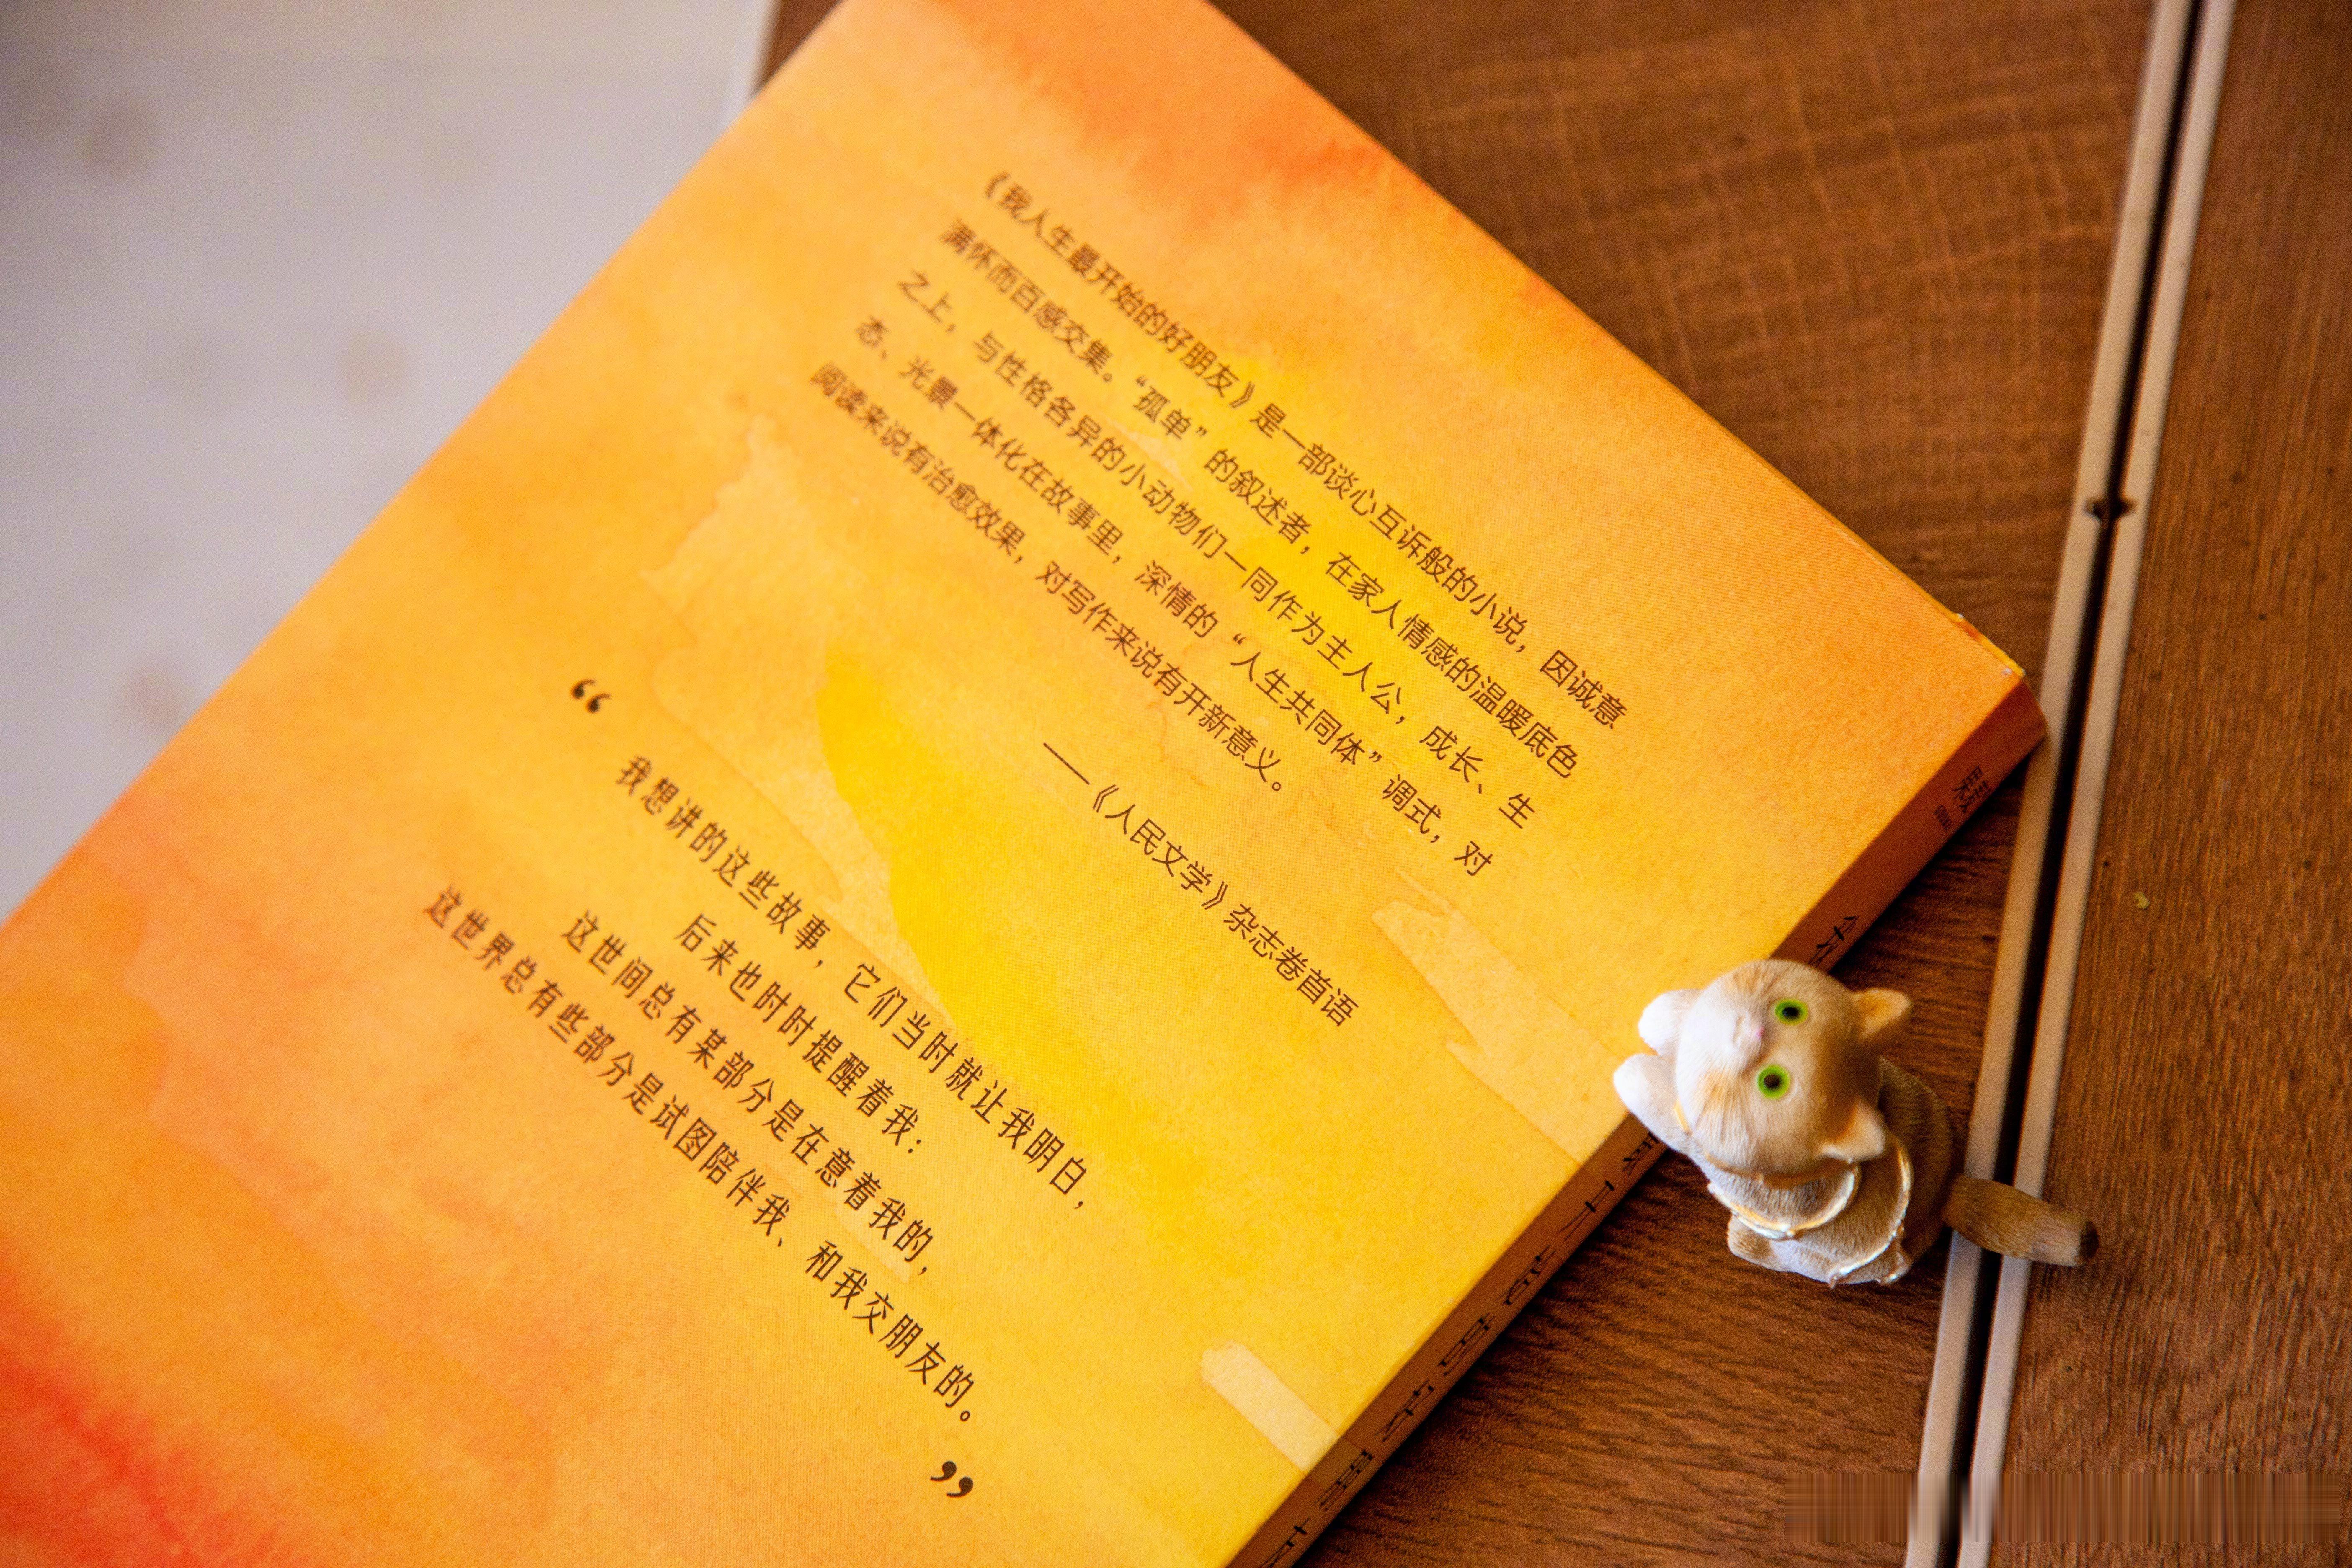 《我人生最开始的好朋友》是一部谈心互诉般的小说，因诚意
满怀而百感交集。“孤单”的叙述者，在家人情感的温暖底色
之上，与性格各异的小动物们一同作为主人公，成长、生
态、光景一体化在故事里，深情的“人生共同体”调式，对
阅读来说有治愈效果，对写作来说有开新意义。
——《人民文学》杂志卷首语
“
我想讲的这些故事，它们当时就让我明白，
后来也时时提醒着我：
这世间总有某部分是在意着我的，
这世界总有些部分是试图陪伴我、和我交朋友的。
”